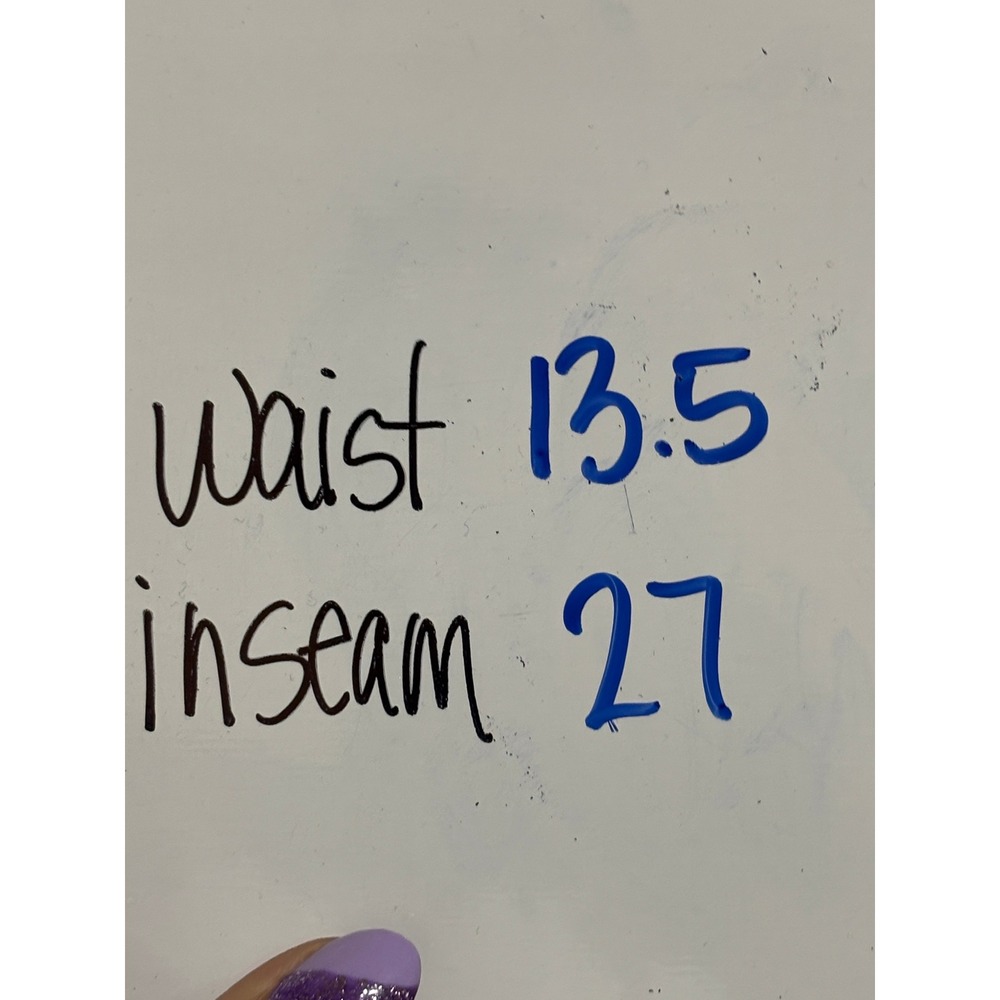 waist 13.5
inseam 27